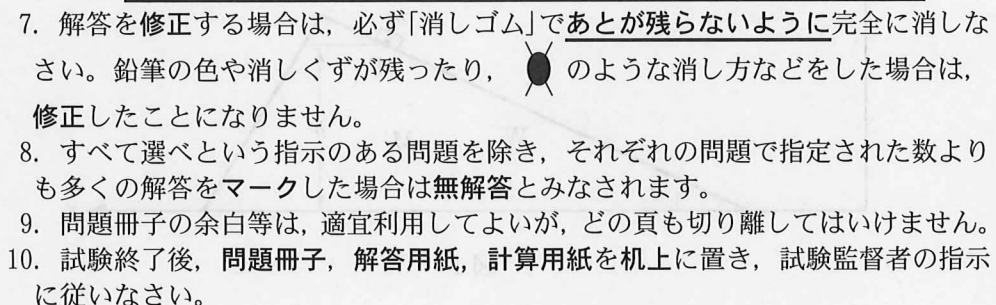 7. 解答を修正する場合は，必ず「消しゴム」であとが残らないように完全に消しな
さい。鉛筆の色や消しくずが残ったり，のような消し方などをした場合は，
修正したことになりません。
8. すべて選べという指示のある問題を除き，それぞれの問題で指定された数より
も多くの解答をマークした場合は無解答とみなされます。
9. 問題冊子の余白等は，適宜利用してよいが，どの頁も切り離してはいけません。
10. 試験終了後，問題冊子，解答用紙，計算用紙を机上に置き，試験監督者の指示
に従いなさい。